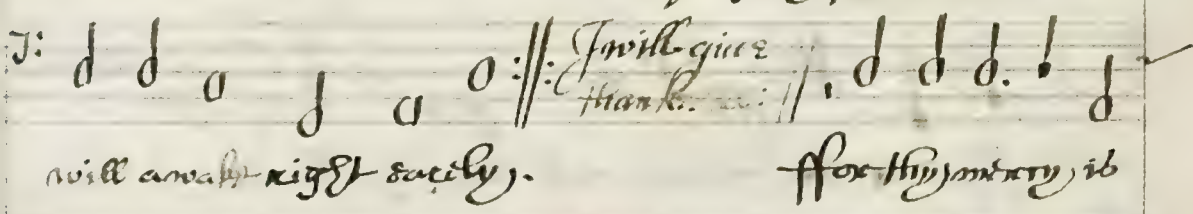 I will give
thank
will awake right early.
ffor thy mercy is